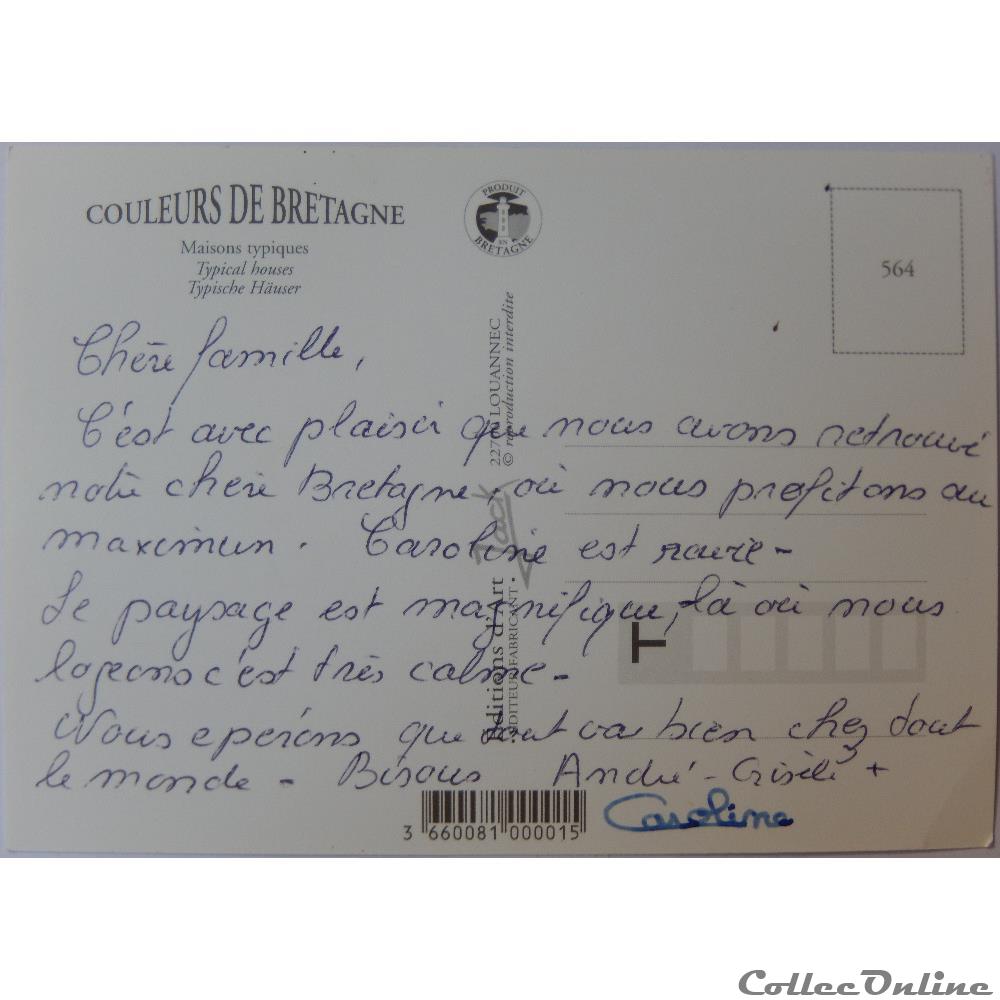 COULEURS DE BRETAGNE
Maisons typiques
Typical houses
Typische Häuser
PRODUIT
EN
BRETAGNE
564
Chère famille,
C'est avec plaisir que nous avons retrouvé
notre chère Bretagne, où nous profitons au
maximun. Caroline est ravie-
Le paysage est magnifique, là où nous
logeons c'est très calme-
Nous epérons que tout va bien chez tout
le monde - Bisous André - Gisèle +
Caroline
Editions d'Art Jack
EDITEUR FABRICANT •
LOUANNEC
© reproduction interdite
T
3 660081 000015
CollecOnline